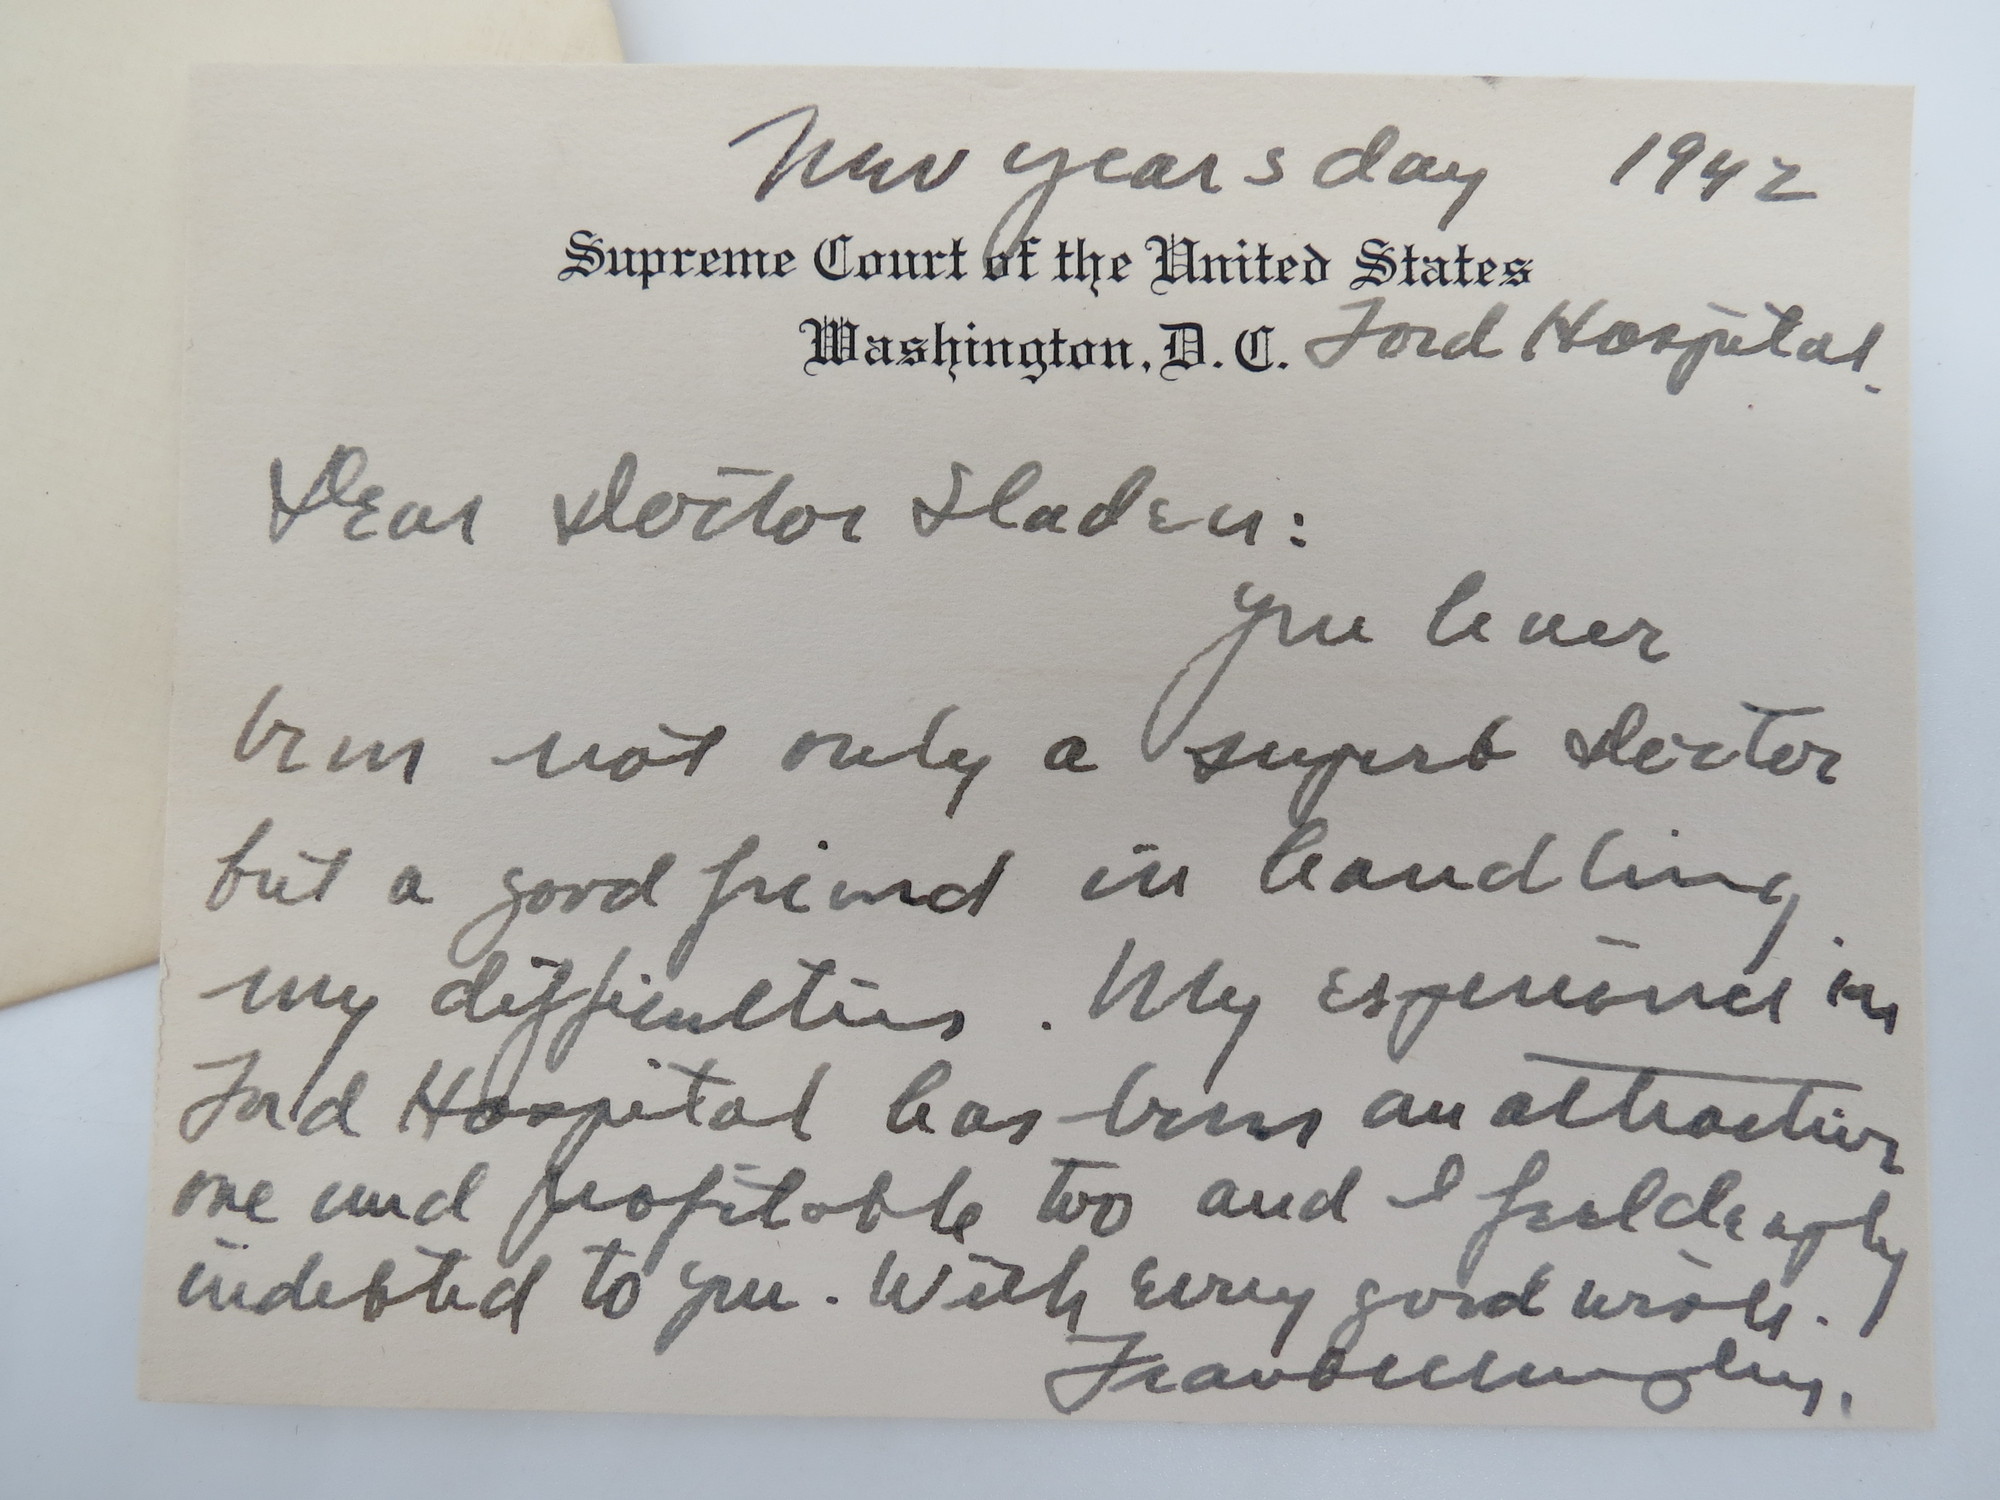 New Years day 1942
Supreme Court of the United States
Washington, D.C. Ford Hospital.
Dear Doctor Sladen:
you have
been not only a superb Doctor
but a good friend in handling
my difficulties. My experience in
Ford Hospital has been an attractive
one and profitable too and I feel deeply
indebted to you. With every good wish.
Frank Murphy.